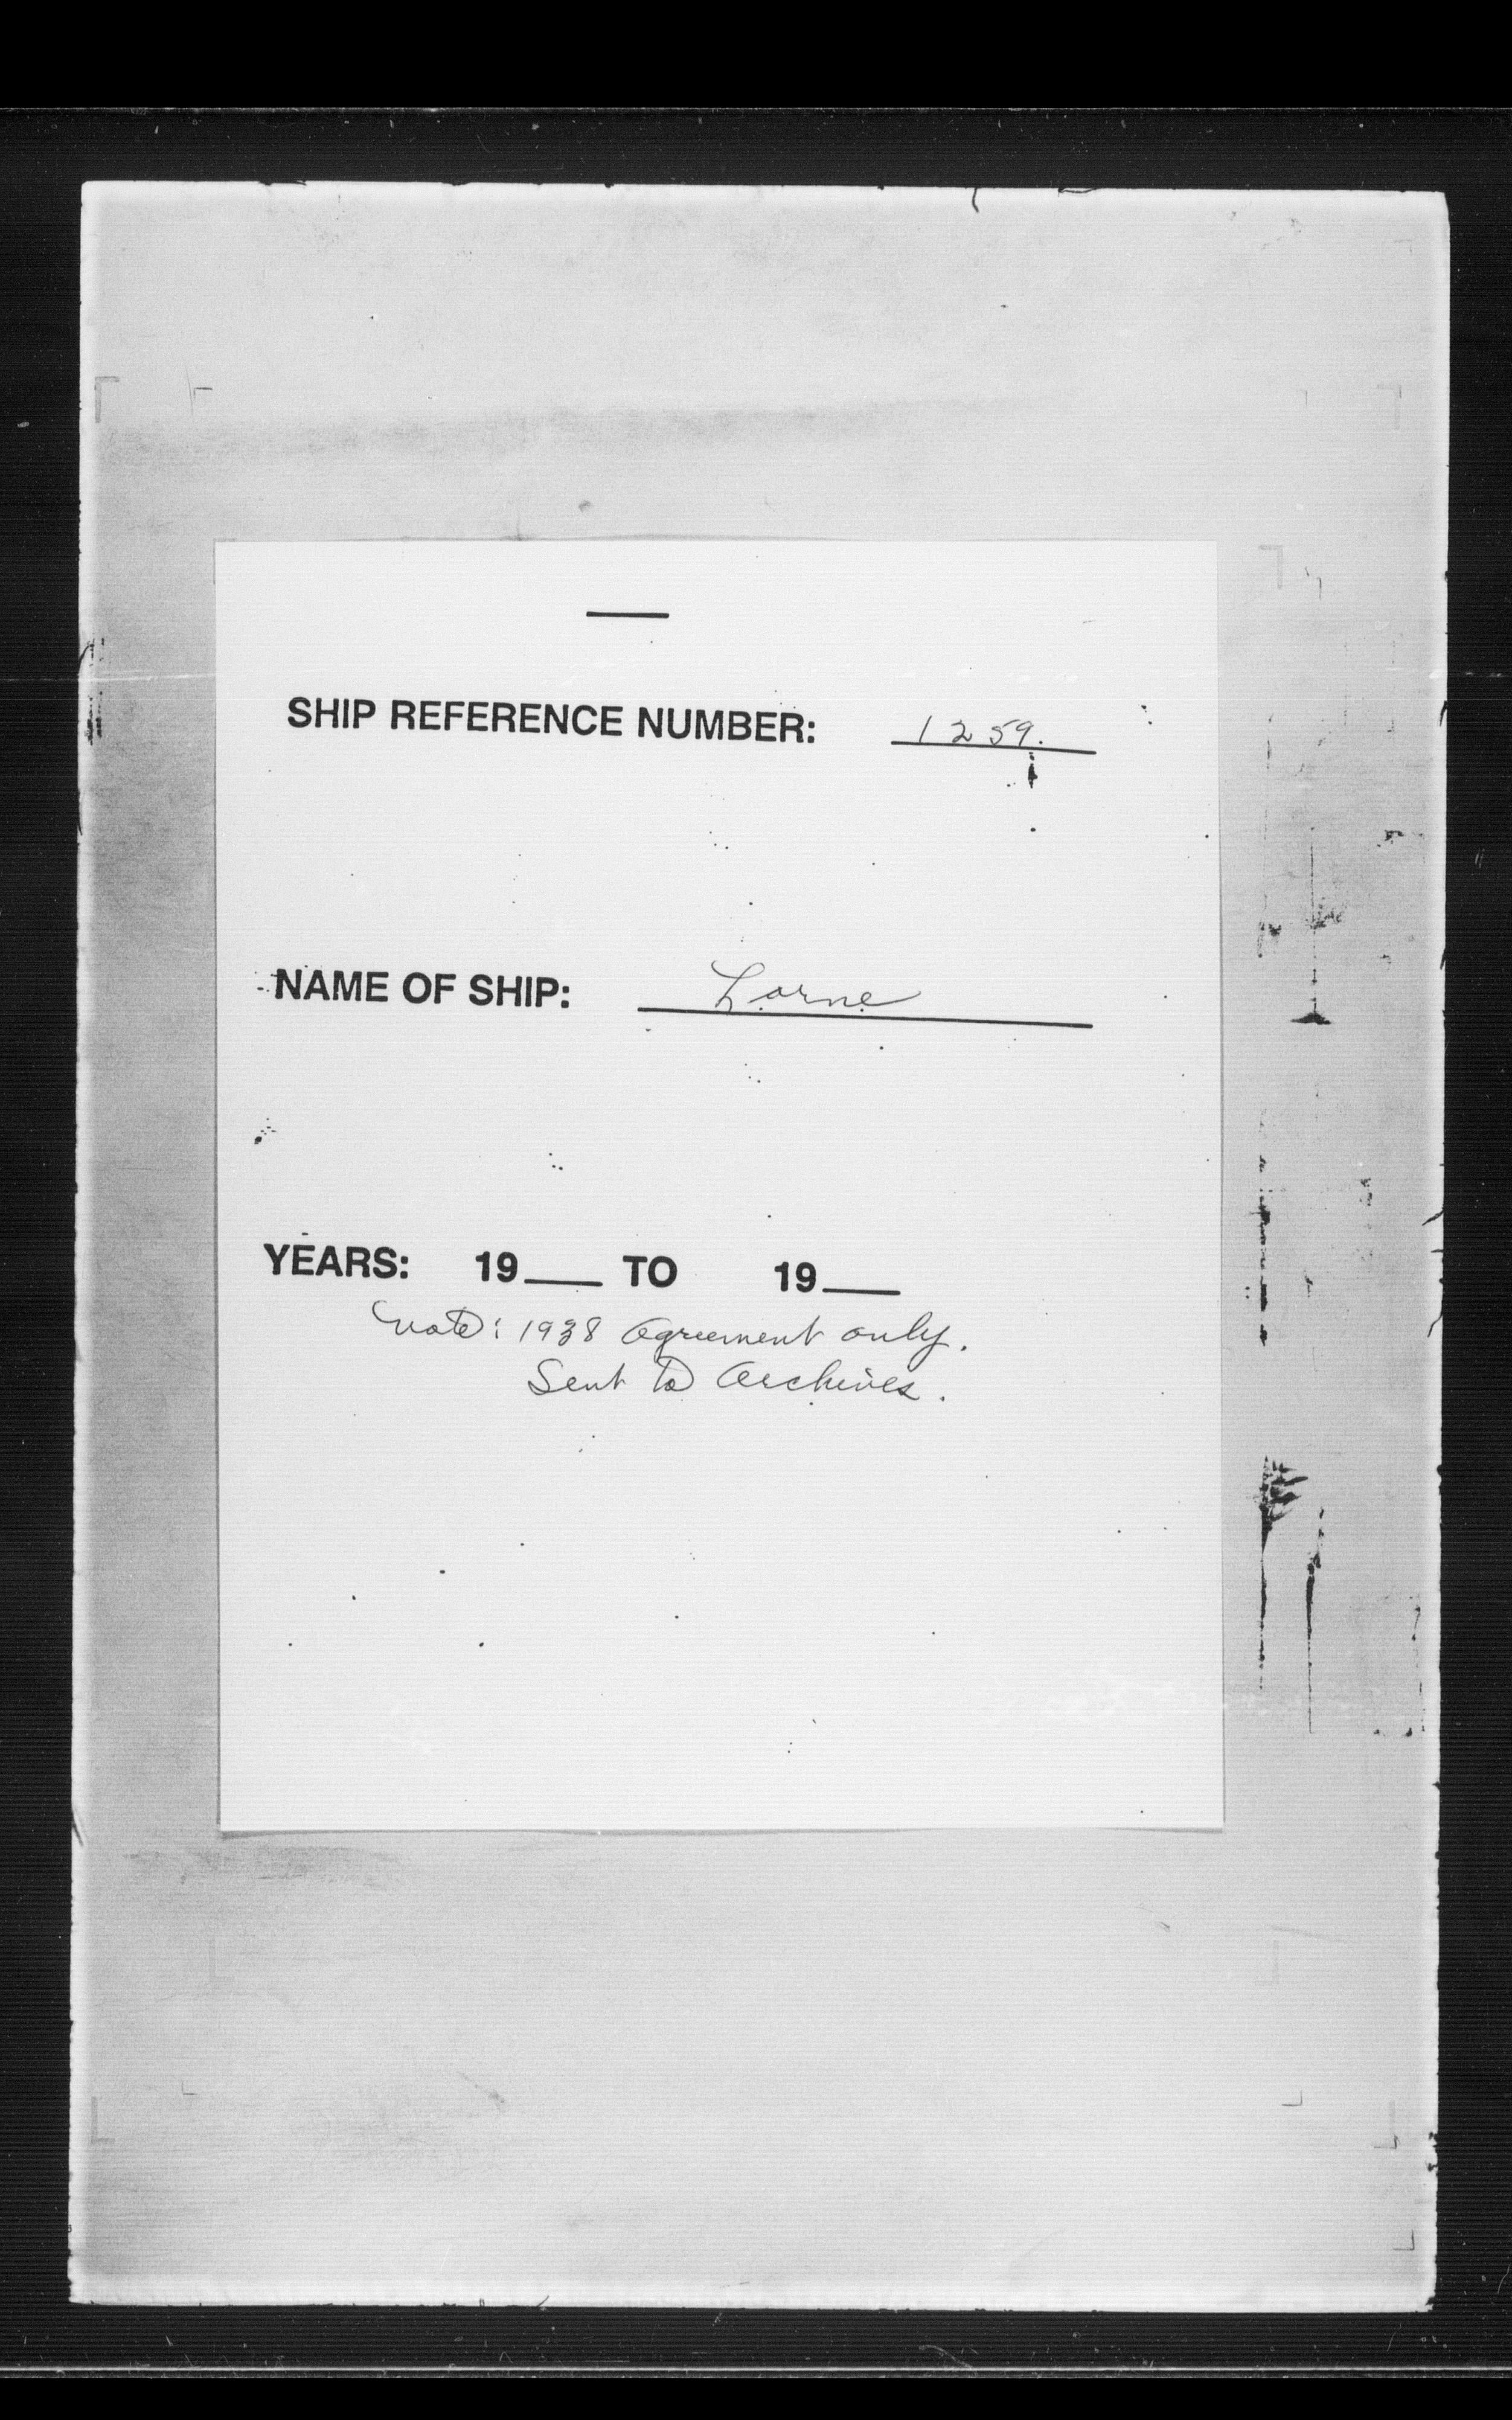 SHIP REFERENCE NUMBER: 1259.
NAME OF SHIP: Lorne
YEARS: 19___ TO 19___
Note: 1938 Agreement only.
Sent to Archives.